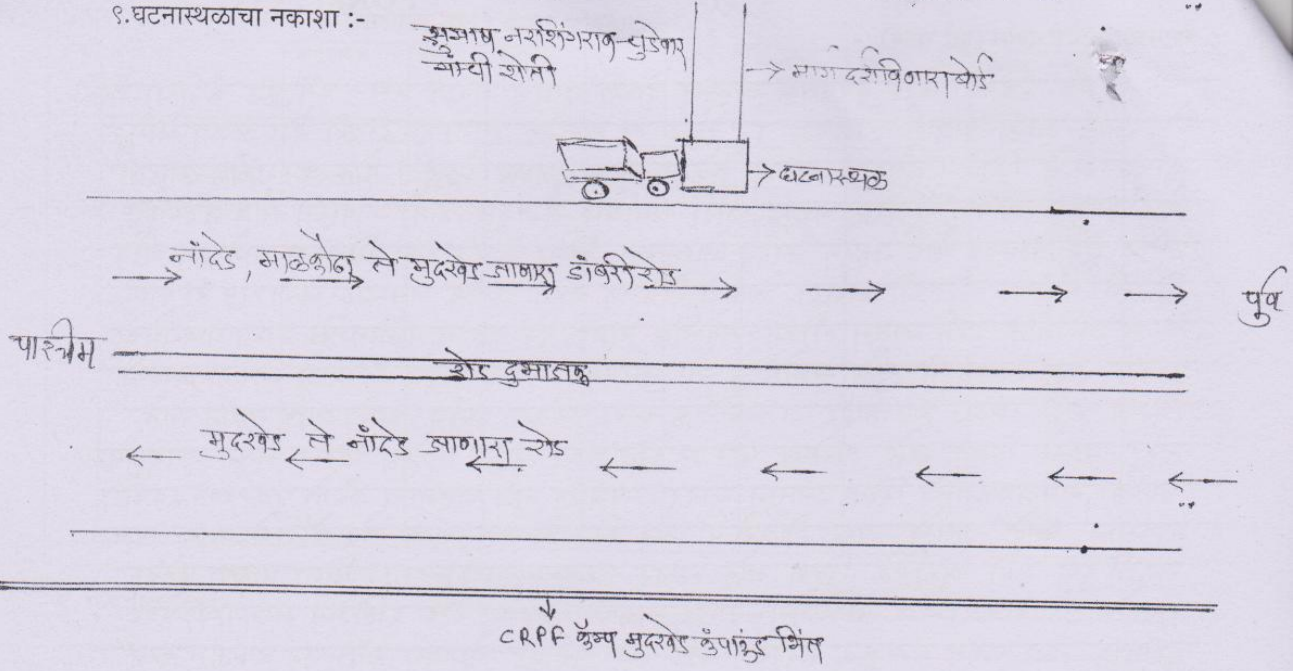 ९.घटनास्थळाचा नकाशा :-
सुभाष नरशिंगराव चुडेवार
यांची शेती
मार्ग दर्शविणारा बोर्ड
घटनास्थळ
नांदेड, माळकौठा ते मुदखेड जाणारा डांबरी रोड
पुर्व
पाश्चीम
रोड दुभाजक
मुदखेड ते नांदेड जाणारा रोड
CRPF कॅम्प मुदखेड कंपांऊड भिंत